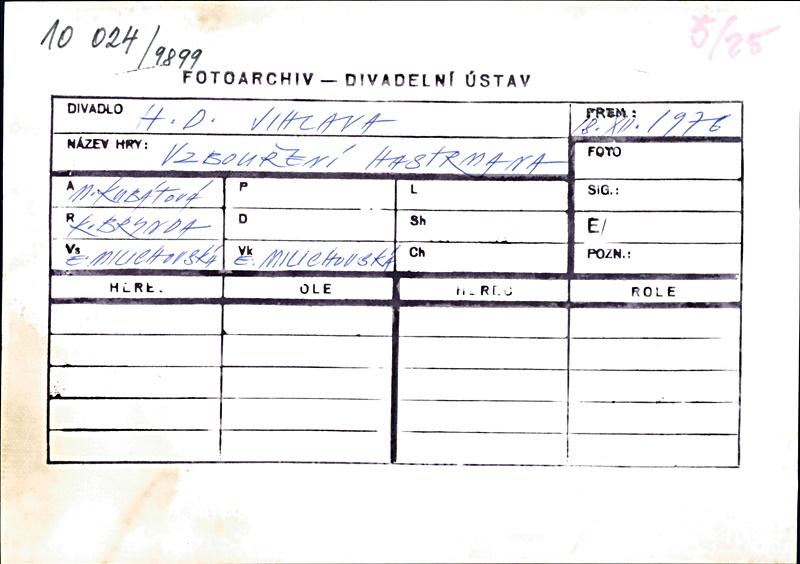 10 024/9899
5/25
FOTOARCHIV — DIVADELNÍ ÚSTAV
DIVADLO H.D. JIHLAVA
PREM.: 18. XII. 1976
NÁZEV HRY: VZBOUŘENÍ HASTRMANA
FOTO
A M. KUBÁTOVÁ P L
SIG.:
R K. BRYNDA D Sh
E/
Vs E. MILICHOVSKÁ Vk E. MILICHOVSKÁ Ch
POZN.:
HEREC ROLE HEREC ROLE